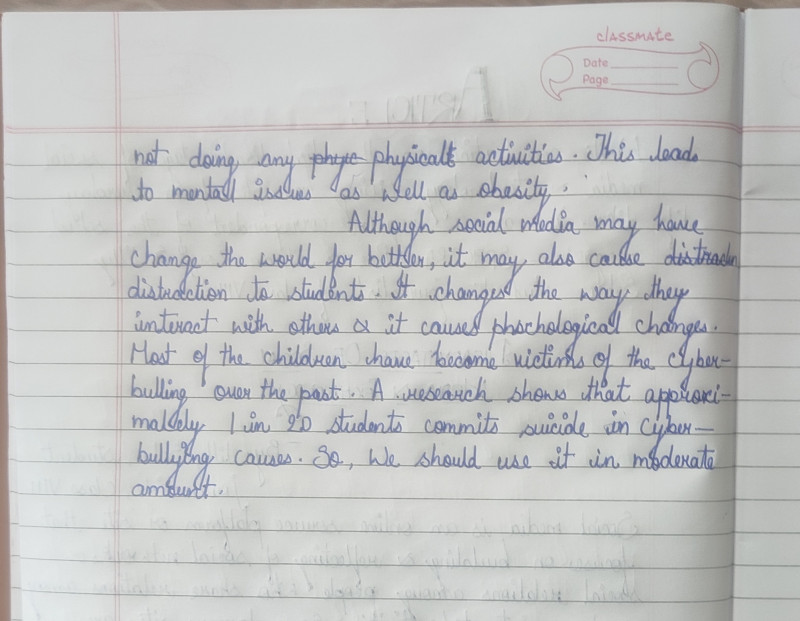 classmate
Date
Page
not doing any phyc physicalt activities. This leads
to mental issues as well as obesity.
Although social media may have
change the world for bettler, it may also cause distracn
distraction to students. It changes the way they
interact with others & it causes phschological changes.
Most of the children have become victims of the Cyber-
bulling over the past. A research shows that approxi-
matdely 1 in 20 students commits suicide in Cyber-
bullying causes. So, We should use it in moderate
amount.